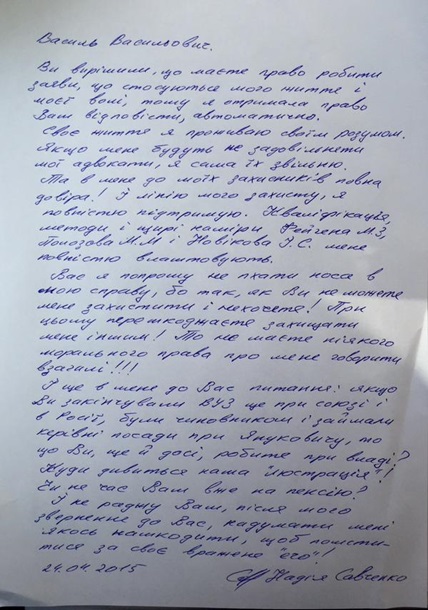 Василь Васильович.
Ви вирішили, що маєте право робити
заяви, що стосуються мого життя і
моєї волі, тому я отримала право
Вам відповісти, автоматично.
Своє життя я проживаю своїм розумом.
Якщо мене будуть не задовільняти
мої адвокати, я сама їх звільню.
Та в мене до моїх захисників повна
довіра! І лінію мого захисту, я
повністю підтримую. Кваліфікація,
методи і щирі наміри Фейгена М.З,
Полозова М.М і Новікова І.С. мене
повністю влаштовують.
Вас я попрошу не пхати носа в
мою справу, бо так, як Ви не можете
мене захистити і нехочете! При
цьому перешкоджаєте захищати
мене іншим! То не маєте ніякого
морального права про мене говорити
взагалі!!!
І ще в мене до Вас питання: якщо
Ви закінчували ВУЗ ще при союзі і
в Росії, були чиновником і займали
керівні посади при Януковичу, то
що Ви, ще й досі, робите при владі?
Куди дивиться нама "люстрація"!
Чи не час Вам вже на пенсію?
І не раджу Вам, після мого
звернення до Вас, надумати мені
якось нашкодити, щоб помсти-
тися за своє вражене "его"!
24.04.2015 Надія Савченко